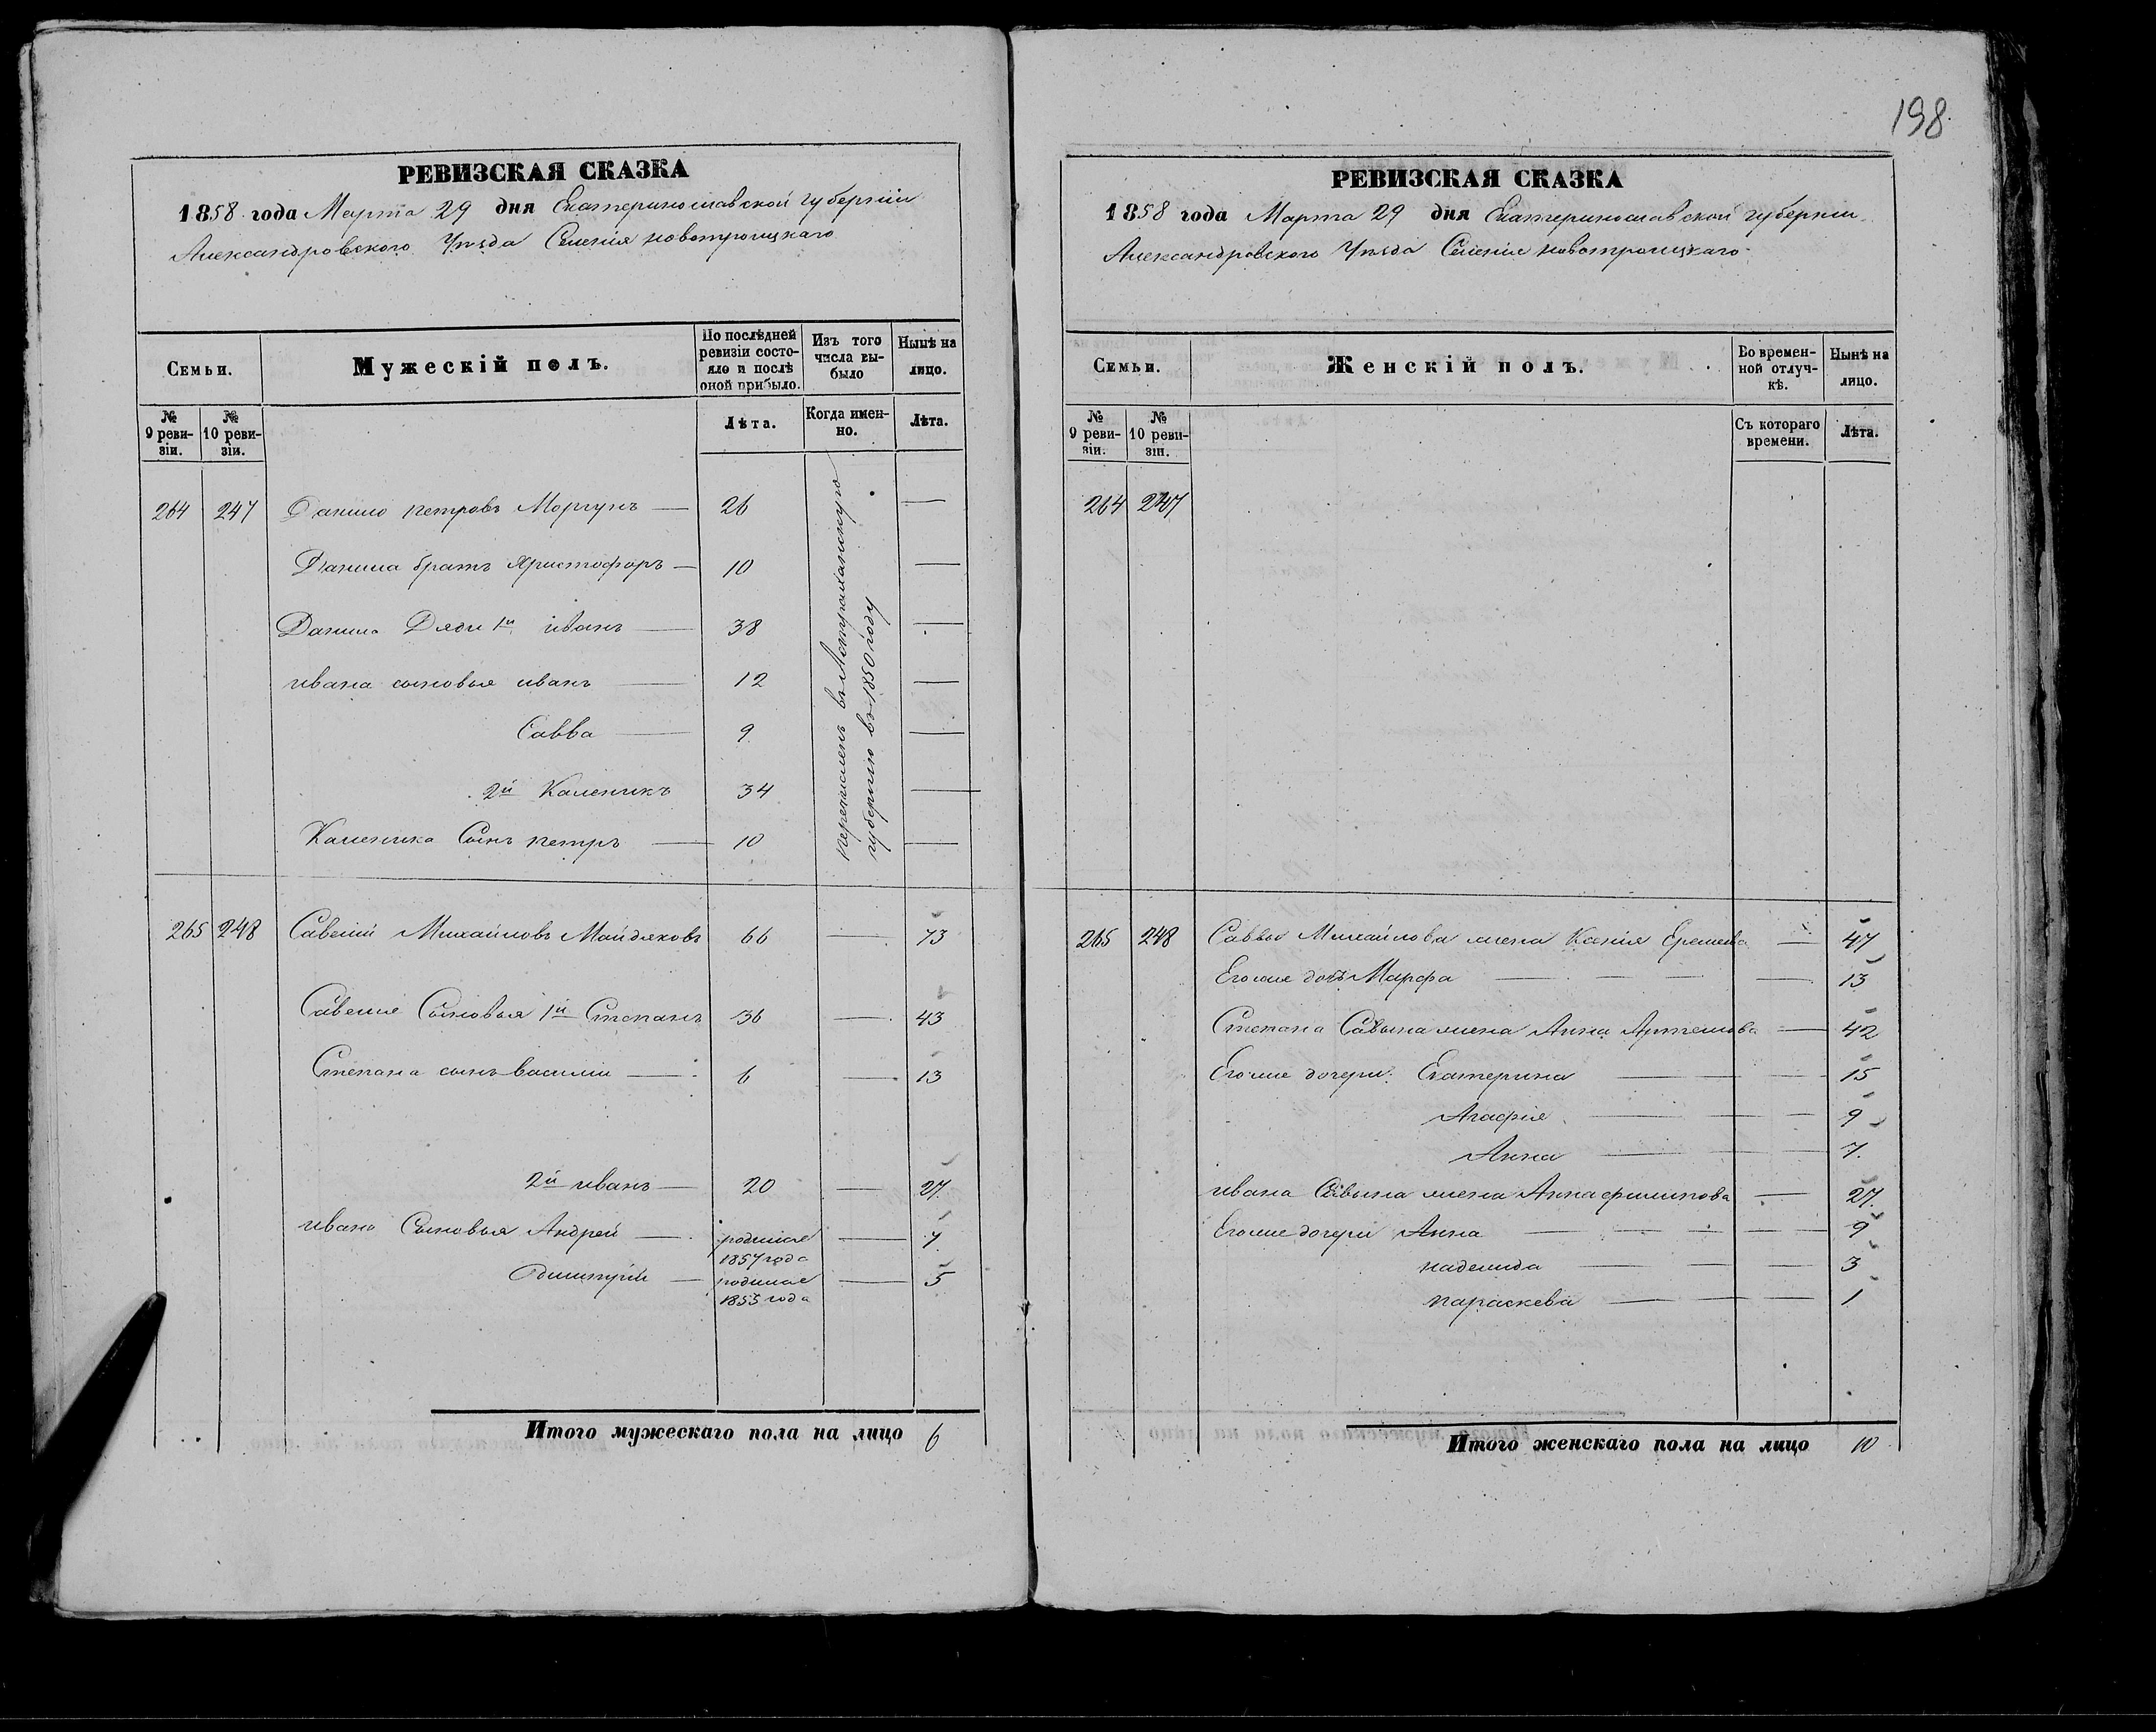 198
РЕВИЗСКАЯ СКАЗКА
1858 года Марта 29 дня Екатеринославской губернии
Александровского Уѣзда Селенія новотроицкаго
Семьи.
Мужескій полъ.
По послѣдней ревизіи состояло и послѣ оной прибыло.
Изъ того числа выбыло
Нынѣ на лицо.
№ 9 ревизіи.
№ 10 ревизіи.
Лѣта.
Когда именно.
Лѣта.
264 247 Данило петровъ Моргунъ — 26 —
Данила братъ Христофоръ — 10 —
Данила Дяди 1й иванъ — 38 —
ивана сыновья иванъ — 12 —
Савва — 9 —
2й Каленикъ 34 —
Каленика Сынъ петръ — 10 —
перечисленъ въ Астраханскую
губернію въ 1850 году
265 248 Савелій Михайловъ Майдяковъ 66 — 73
Савелія Сыновья 1й Степанъ 36 — 43
Степана сынъ василии — 6 — 13
2й иванъ — 20 — 27.
ивана Сыновья Андрей — родился — 7
1857 года
Димитрій — родился — 5
1853 года
Итого мужескаго пола на лицо 6
РЕВИЗСКАЯ СКАЗКА
1858 года Марта 29 дня Екатеринославской губернии
Александровского Уѣзда Селенія новотроицкаго
Семьи.
Женскій полъ.
Во временной отлучкѣ.
Нынѣ на лицо.
№ 9 ревизіи.
№ 10 ревизіи.
Съ котораго времени.
Лѣта.
264 247
265 248 Саввы Михайлова жена Ксенія — 47
Егоже дочь Марфа — — 13
Степана Савина жена Анна Артемова — 42
Егоже дочери: Екатерина — — 15
Агафія — — 9
Анна — — 7.
ивана Савина жена Анна филипова — 27.
Егоже дочери Анна — — 9
надежда — — 3
параскева — — 1
Итого женскаго пола на лицо 10